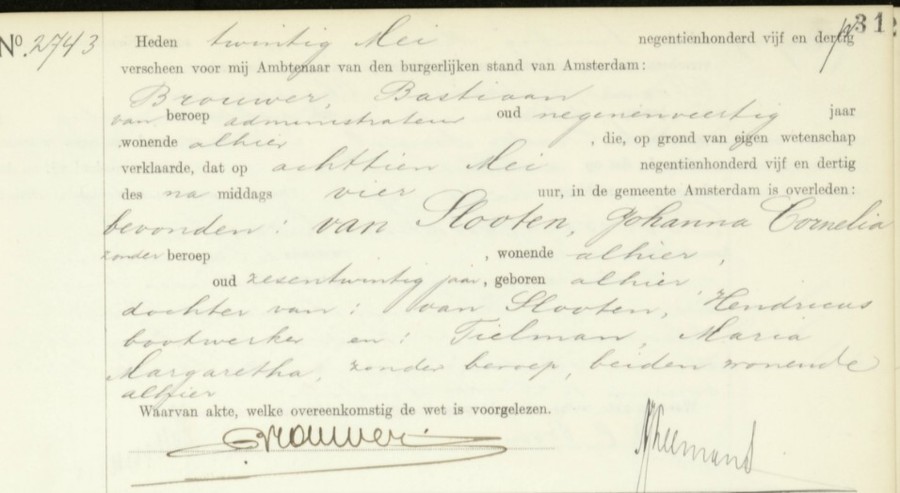 312
No. 2743
Heden twintig Mei negentienhonderd vijf en dertig
verscheen voor mij Ambtenaar van den burgerlijken stand van Amsterdam:
Brouwer, Bastiaan
van beroep administrateur oud negenenveertig jaar
wonende alhier, die, op grond van eigen wetenschap
verklaarde, dat op achttien Mei negentienhonderd vijf en dertig
des na middags vier uur, in de gemeente Amsterdam is overleden:
bevonden: van Slooten, Johanna Cornelia
zonder beroep, wonende alhier,
oud zesentwintig jaar, geboren alhier
dochter van: van Slooten, Hendricus
bootwerker en: Tielman, Maria
Margaretha, zonder beroep, beiden wonende
alhier
Waarvan akte, welke overeenkomstig de wet is voorgelezen.
Brouwer